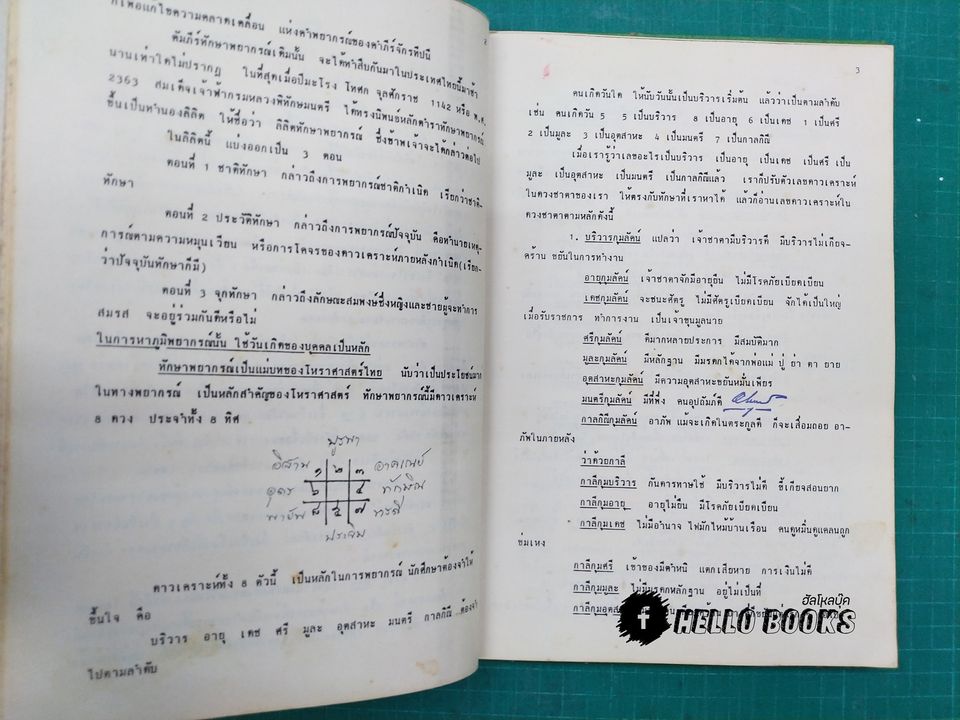 ก็เพื่อแก้ไขความคลาดเคลื่อน แห่งคำพยากรณ์ของคำภีร์จักรทีปนี
คัมภีร์ทักษาพยากรณ์เดิมนั้น จะได้ทำสืบกันมาในประเทศไทยนี้มาช้า
นานเท่าใดไม่ปรากฏ ในที่สุดเมื่อปีมะโรง โทศก จุลศักราช 1142 หรือ พ.ศ.
2363 สมเด็จเจ้าฟ้ากรมหลวงพิทักษมนตรี ได้ทรงนิพนธหลักตำราทักษาพยากรณ์
ขึ้นเป็นทำนองลิลิต ให้ชื่อว่า ลิลิตทักษาพยากรณ์ ซึ่งข้าพเจ้าจะได้กล่าวต่อไป
ในลิลิตนี้ แบ่งออกเป็น 3 ตอน
ตอนที่ 1 ชาติทักษา กล่าวถึงการพยากรณ์ชาติกำเนิด เรียกว่าชาติ-
ทักษา
ตอนที่ 2 ประวัติทักษา กล่าวถึงการพยากรณ์ปัจจุบัน คือทำนายเหตุ-
การณ์ตามความหมุนเวียน หรือการโคจรของดาวเคราะห์ภายหลังกำเนิด(เรียก-
ว่าปัจจุบันทักษาก็มี)
ตอนที่ 3 จุกทักษา กล่าวถึงลักษณะสมพงษ์ซึ่งหญิงและชายผู้จะทำการ
สมรส จะอยู่ร่วมกันดีหรือไม่
ในการหาภูมิพยากรณ์นั้น ใช้วันเกิดของบุคคลเป็นหลัก
ทักษาพยากรณ์เป็นแม่บทของโหราศาสตร์ไทย นับว่าเป็นประโยชน์มาก
ในทางพยากรณ์ เป็นหลักสำคัญของโหราศาสตร์ ทักษาพยากรณ์นี้มีดาวเคราะห์
8 ดวง ประจำทั้ง 8 ทิศ
บูรพา
อิสาน ๑ ๒ ๓ อาคเณย์
อุดร ๖ ๔ ทักษิณ
พายัพ ๘ ๕ ๗ หรดี
ประจิม
ดาวเคราะห์ทั้ง 8 ตัวนี้ เป็นหลักในการพยากรณ์ นักศึกษาต้องจำให้
ขึ้นใจ คือ
บริวาร อายุ เดช ศรี มูละ อุตสาหะ มนตรี กาลกิณี ต้องจำ
ไปตามลำดับ
3
คนเกิดวันใด ให้นับวันนั้นเป็นบริวารเริ่มต้น แล้วว่าเป็นตามลำดับ
เช่น คนเกิดวัน 5 5 เป็นบริวาร 8 เป็นอายุ 6 เป็นเดช 1 เป็นศรี
2 เป็นมูละ 3 เป็นอุตสาหะ 4 เป็นมนตรี 7 เป็นกาลกิณี
เมื่อเรารู้ว่าเลขอะไรเป็นบริวาร เป็นอายุ เป็นเดช เป็นศรี เป็น
มูละ เป็นอุตสาหะ เป็นมนตรี เป็นกาลกิณีแล้ว เราก็ปรับตัวเลขดาวเคราะห์
ในดวงชาตาของเรา ให้ตรงกับทักษาที่เราหาได้ แล้วก็อ่านเลขดาวเคราะห์ใน
ดวงชาตาตามหลักดังนี้
1. บริวารกุมลัคน์ แปลว่า เจ้าชาตามีบริวารดี มีบริวารไม่เกียจ-
คร้าน ขยันในการทำงาน
อายุกุมลัคน์ เจ้าชาตาจักมีอายุยืน ไม่มีโรคภัยเบียดเบียน
เดชกุมลัคน์ จะชนะศัตรู ไม่มีศัตรูเบียดเบียน จักได้เป็นใหญ่
เมื่อรับราชการ ทำการงาน เป็นเจ้าขุนมูลนาย
ศรีกุมลัคน์ ดีมากหลายประการ มีสมบัติมาก
มูละกุมลัคน์ มีหลักฐาน มีมรดกได้จากพ่อแม่ ปู่ ย่า ตา ยาย
อุตสาหะกุมลัคน์ มีความอุตสาหะขยันหมั่นเพียร
มนตรีกุมลัคน์ มีที่พึ่ง คนอุปถัมภ์ดี
กาลกิณีกุมลัคน์ อาภัพ แม้จะเกิดในตระกูลดี ก็จะเสื่อมถอย อา-
ภัพในภายหลัง
ว่าด้วยกาลี
กาลีกุมบริวาร กันดารทาษใช้ มีบริวารไม่ดี ขี้เกียจสอนยาก
กาลีกุมอายุ อายุไม่ยืน มีโรคภัยเบียดเบียน
กาลีกุมเดช ไม่มีอำนาจ ไฟมักไหม้บ้านเรือน คนดูหมิ่นดูแคลนถูก
ข่มเหง
กาลีกุมศรี เข้าของมีตำหนิ แตกเสียหาย การเงินไม่ดี
กาลีกุมมูละ ไม่มีมรดกหลักฐาน อยู่ไม่เป็นที่
กาลีกุมอุตส
ฮัลโหลบุ๊ค
f HELLO BOOKS